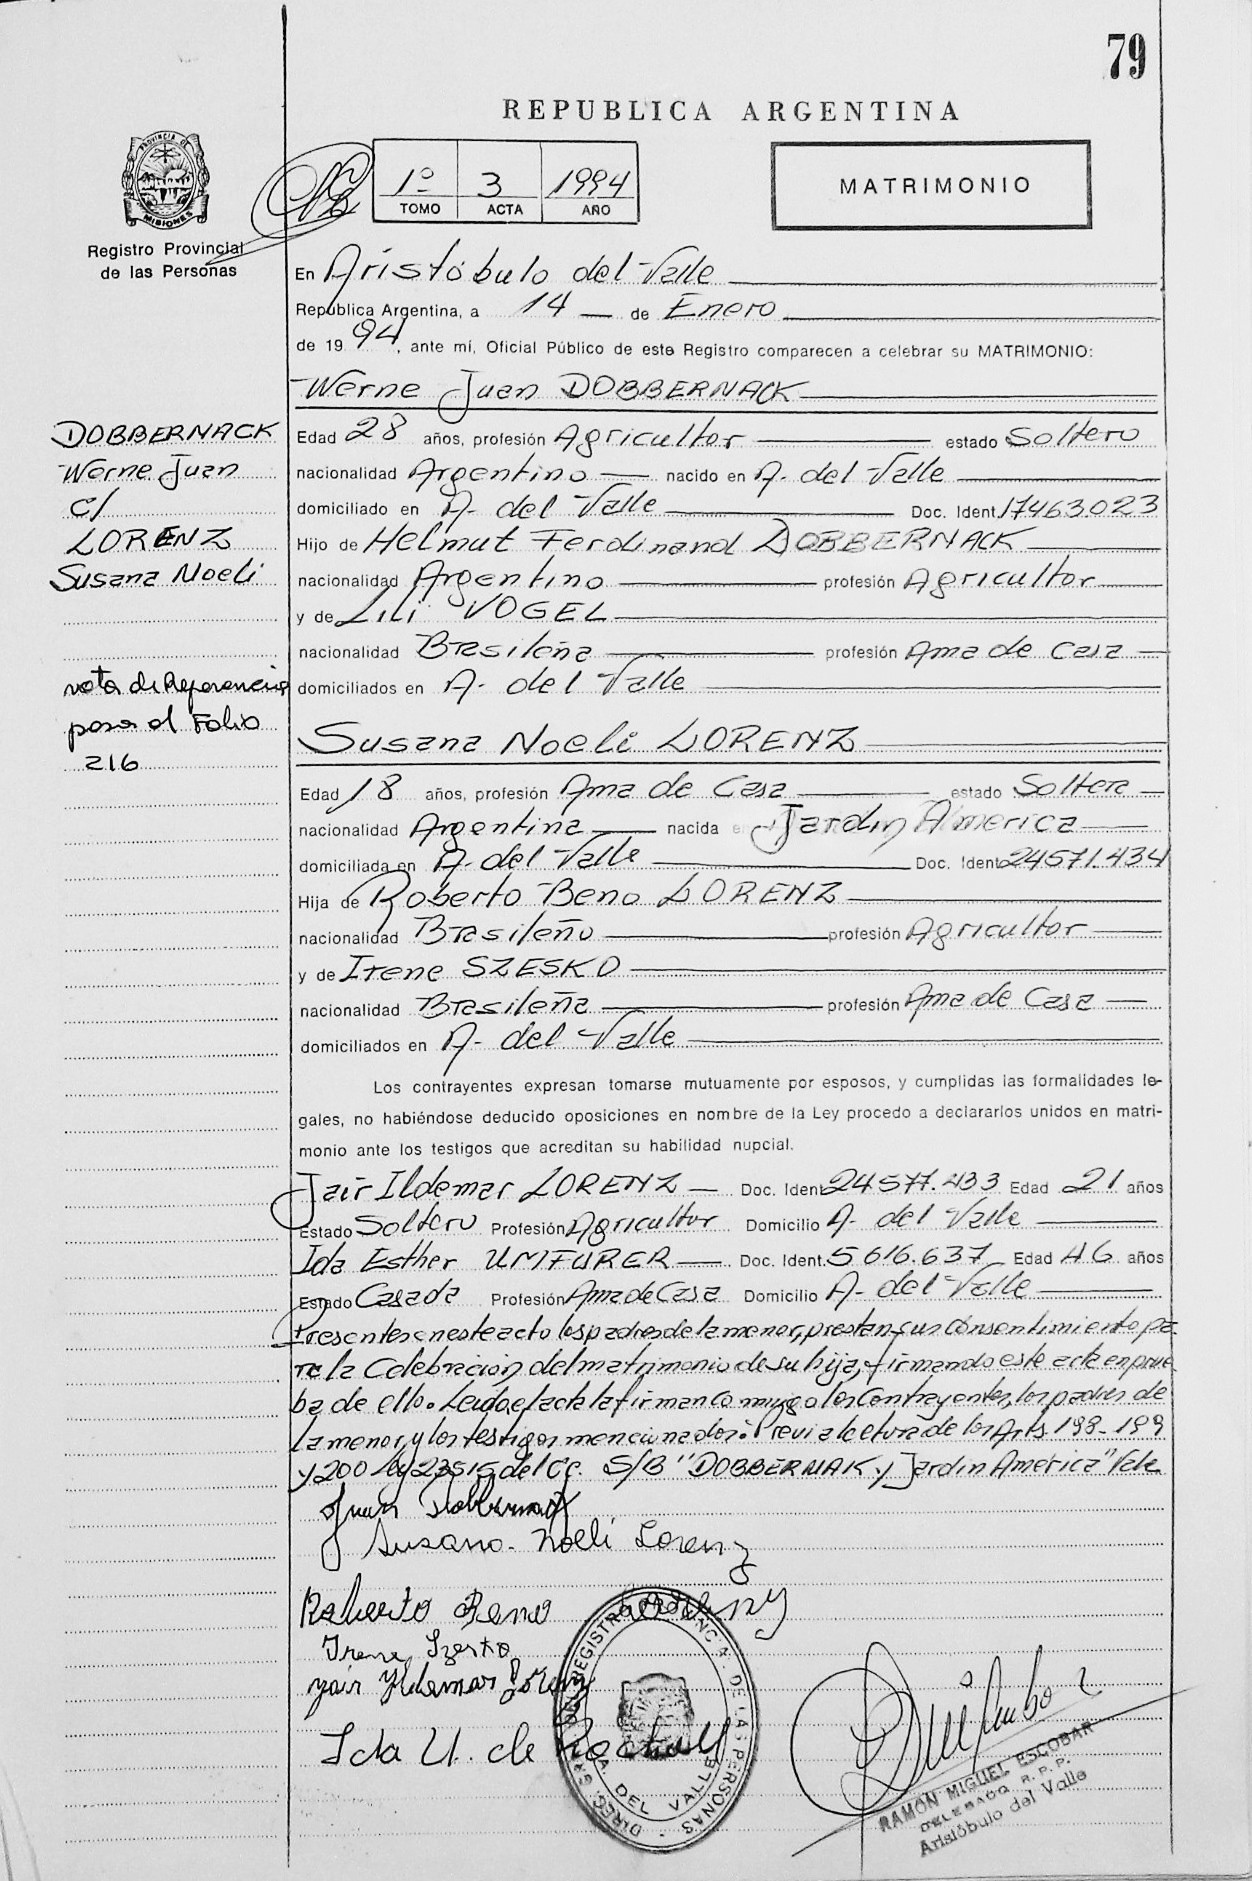 79
REPUBLICA ARGENTINA
PROVINCIA D
MISIONES
Registro Provincial
de las Personas
1º 3 1994
TOMO ACTA AÑO
MATRIMONIO
En Aristóbulo del Valle
República Argentina, a 14 de Enero
de 1994, ante mí, Oficial Público de este Registro comparecen a celebrar su MATRIMONIO:
Werne Juan DOBBERNACK
DOBBERNACK
Werne Juan
c/
LORENZ
Susana Noeli
nota de Referencia
pasa al Folio
216
Edad 28 años, profesión Agricultor estado Soltero
nacionalidad Argentino nacido en A. del Valle
domiciliado en A. del Valle Doc. Ident. 17463.023
Hijo de Helmut Ferdinand DOBBERNACK
nacionalidad Argentino profesión Agricultor
y de Lili VOGEL
nacionalidad Brasileña profesión Ama de Casa
domiciliados en A. del Valle
Susana Noeli LORENZ
Edad 18 años, profesión Ama de Casa estado Soltera
nacionalidad Argentina nacida en Jardin America
domiciliada en A. del Valle Doc. Ident. 24571.434
Hija de Roberto Beno LORENZ
nacionalidad Brasileño profesión Agricultor
y de Irene SZESKO
nacionalidad Brasileña profesión Ama de Casa
domiciliados en A. del Valle
Los contrayentes expresan tomarse mutuamente por esposos, y cumplidas las formalidades le-
gales, no habiéndose deducido oposiciones en nombre de la Ley procedo a declararlos unidos en matri-
monio ante los testigos que acreditan su habilidad nupcial.
Jair Ildemar LORENZ Doc. Ident. 24571.433 Edad 21 años
Estado Soltero Profesión Agricultor Domicilio A. del Valle
Ida Esther UMFURER Doc. Ident. 5616.637 Edad 46 años
Estado Casada Profesión Ama de Casa Domicilio A. del Valle
Presentes en este acto los padres de la menor, prestan su consentimiento pa-
ra la celebración del matrimonio de su hija, firmando este acta en prue-
ba de ello. Leida el acta la firman conmigo los contrayentes, los padres de
la menor, y los testigos mencionados. Previa lectura de los Arts. 198-199
y 200 Ley 23515 del CC. S/B "DOBBERNAK y Jardin America" Vale
Juan Dobbernack
Susana Noeli Lorenz
Roberto Beno Lorenz
Irene Szesko
Yair Yldemar Lorenz
Ida U. de
DIREC. GRAL. DEL REGISTRO PROVINCIAL DE LAS PERSONAS
A. DEL VALLE
RAMÓN MIGUEL ESCOBAR
DELEGADO R.P.P.
Aristóbulo del Valle